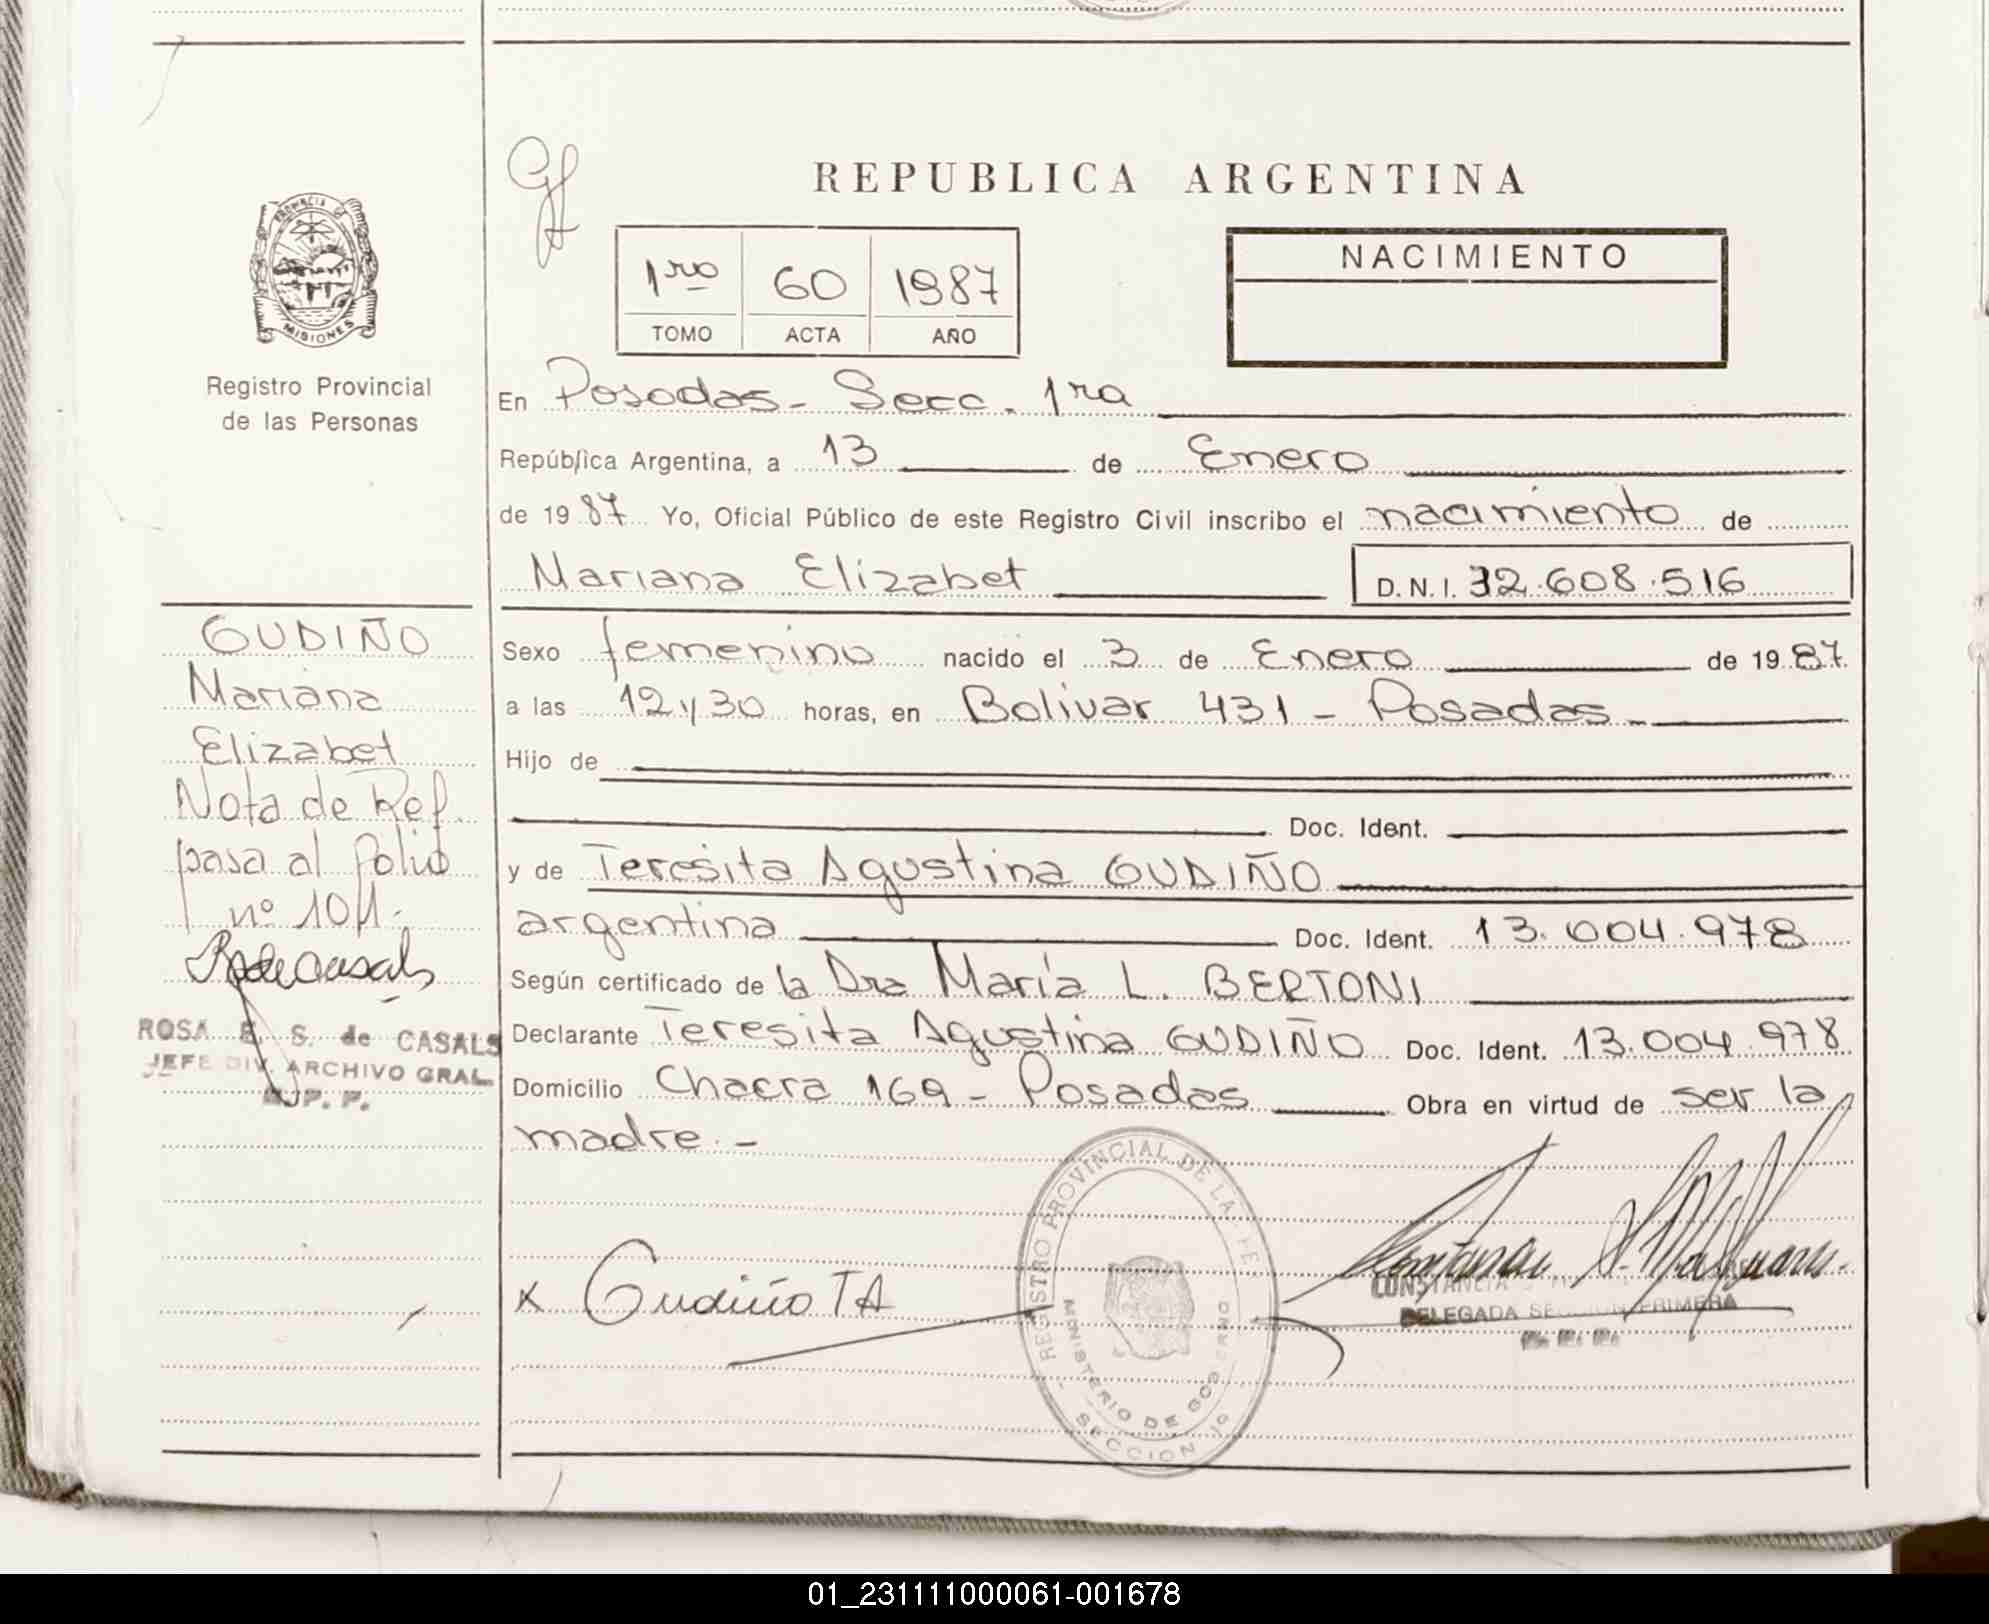 REPUBLICA ARGENTINA
PROVINCIA DE
MISIONES
Registro Provincial
de las Personas
1ro 60 1987
TOMO ACTA AÑO
NACIMIENTO
En Posadas - Secc. 1ra
República Argentina, a 13 de Enero
de 1987 Yo, Oficial Público de este Registro Civil inscribo el nacimiento de
Mariana Elizabet D.N.I. 32.608.516
GUDIÑO
Mariana
Elizabet
Nota de Ref.
pasa al folio
nº 101.
ROSA E. S. de CASALS
JEFE DIV. ARCHIVO GRAL.
R. P. P.
Sexo femenino nacido el 3 de Enero de 1987.
a las 12y30 horas, en Bolivar 431 - Posadas -
Hijo de
Doc. Ident.
y de Teresita Agustina GUDIÑO
argentina Doc. Ident. 13.004.978
Según certificado de la Dra María L. BERTONI
Declarante Teresita Agustina GUDIÑO Doc. Ident. 13.004.978
Domicilio Chacra 169 - Posadas Obra en virtud de ser la
madre. -
x Gudiño TA
REGISTRO PROVINCIAL DE LA
MINISTERIO DE GOBIERNO
SECCION 1ª
CONSTANCIA
DELEGADA SECCION PRIMERA
01_231111000061-001678